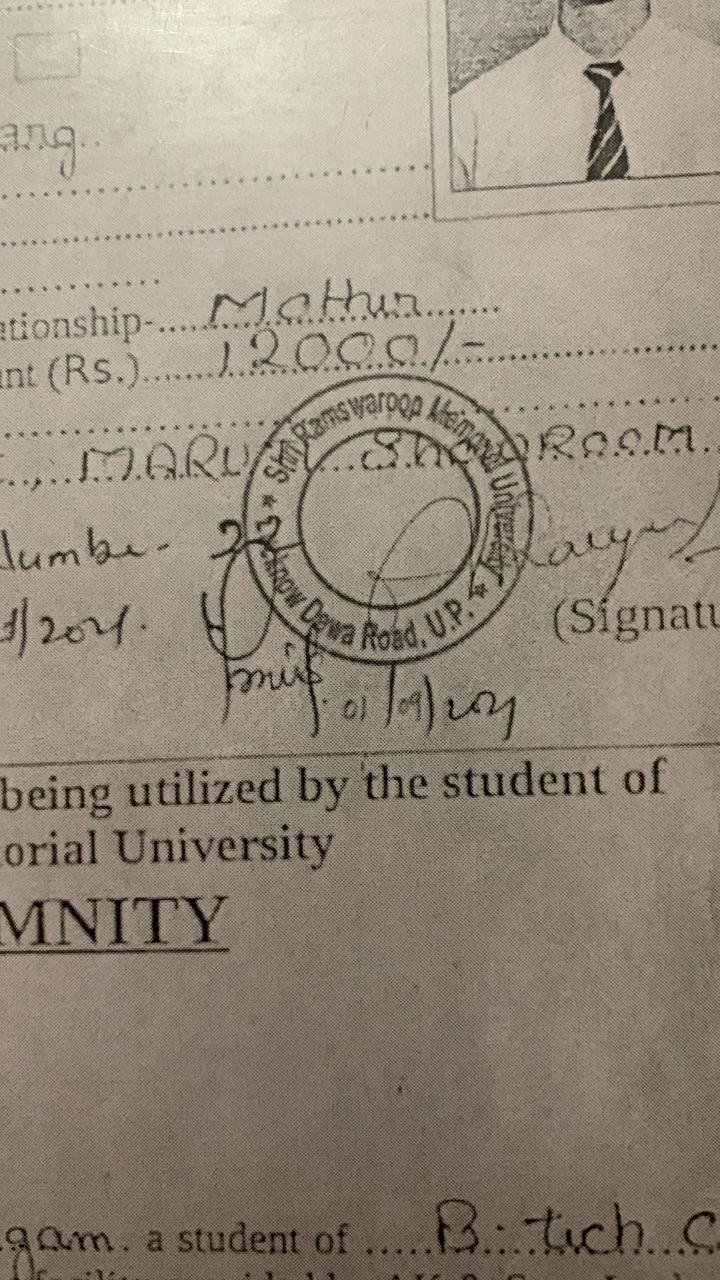 ang..
ationship-....Mother......
unt (Rs.)......12000/-
MARUTI SHOWROOM..
Shri Ramswaroop Memorial University
Lucknow Dewa Road, U.P.
/2021.
(Signatu
01/09/2021
being utilized by the student of
orial University
MNITY
gam. a student of .....B. tech C